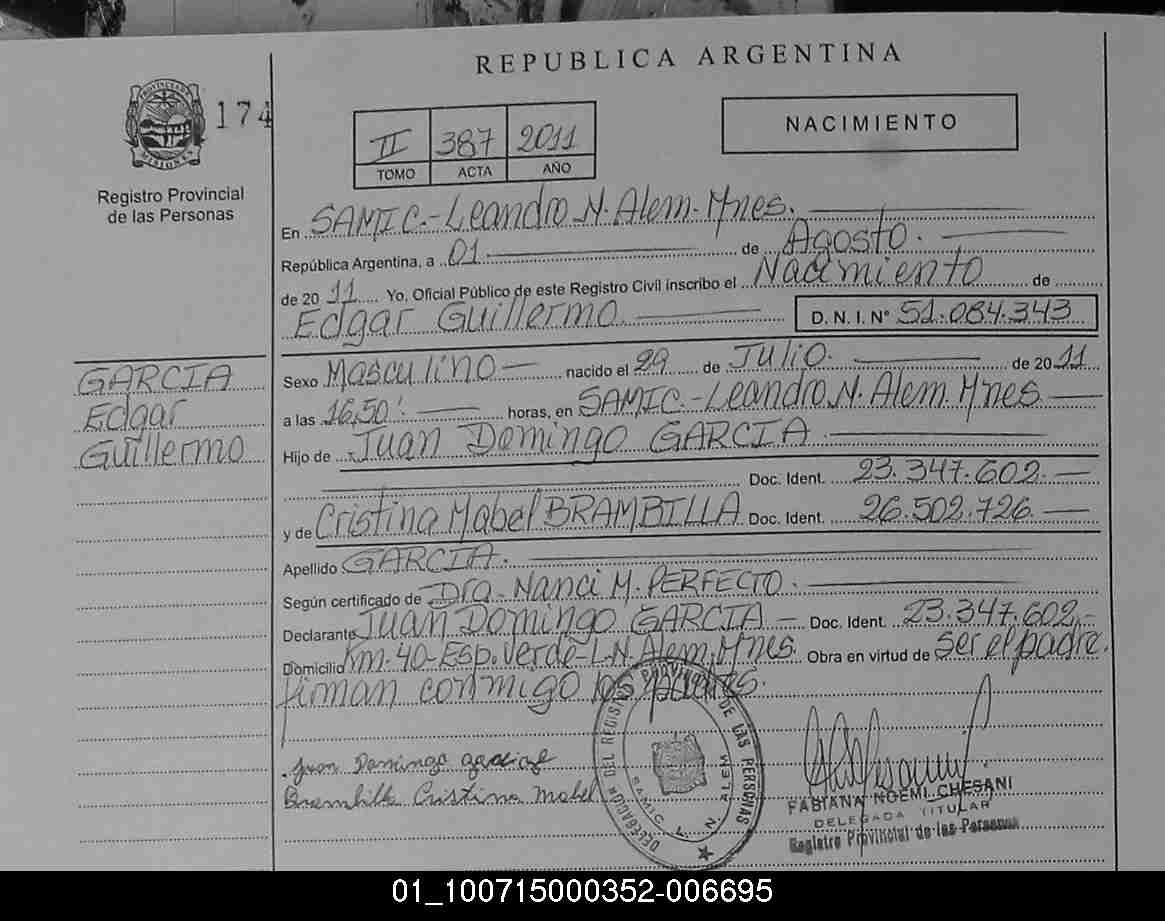 REPUBLICA ARGENTINA
PROVINCIA DE MISIONES
174
Registro Provincial
de las Personas
II 387 2011
TOMO ACTA AÑO
NACIMIENTO
En SAMIC.-Leandro N. Alem-Mnes.
República Argentina, a 01 de Agosto.
de 2011 Yo, Oficial Público de este Registro Civil inscribo el Nacimiento de
Edgar Guillermo D. N. I. N° 51.084.343
GARCIA
Edgar
Guillermo
Sexo Masculino nacido el 29 de Julio. de 2011
a las 16,50'. horas, en SAMIC.-Leandro N. Alem. Mnes.
Hijo de Juan Domingo GARCIA
Doc. Ident. 23.347.602.
y de Cristina Mabel BRAMBILLA Doc. Ident. 26.502.726.
Apellido GARCIA.
Según certificado de Dra. Nanci M. PERFECTO.
Declarante Juan Domingo GARCIA Doc. Ident. 23.347.602,-
Domicilio Km-40-Esp. Verde-L.N. Alem, Mnes. Obra en virtud de ser el padre.
firman conmigo los padres.
Juan Domingo
Brambilla Cristina Mabel
DELEGACION DEL REGISTRO PROVINCIAL DE LAS PERSONAS
SAMIC L. N. ALEM
FABIANA NOEMI CHESANI
DELEGADA TITULAR
Registro Provincial de las Personas
01_100715000352-006695